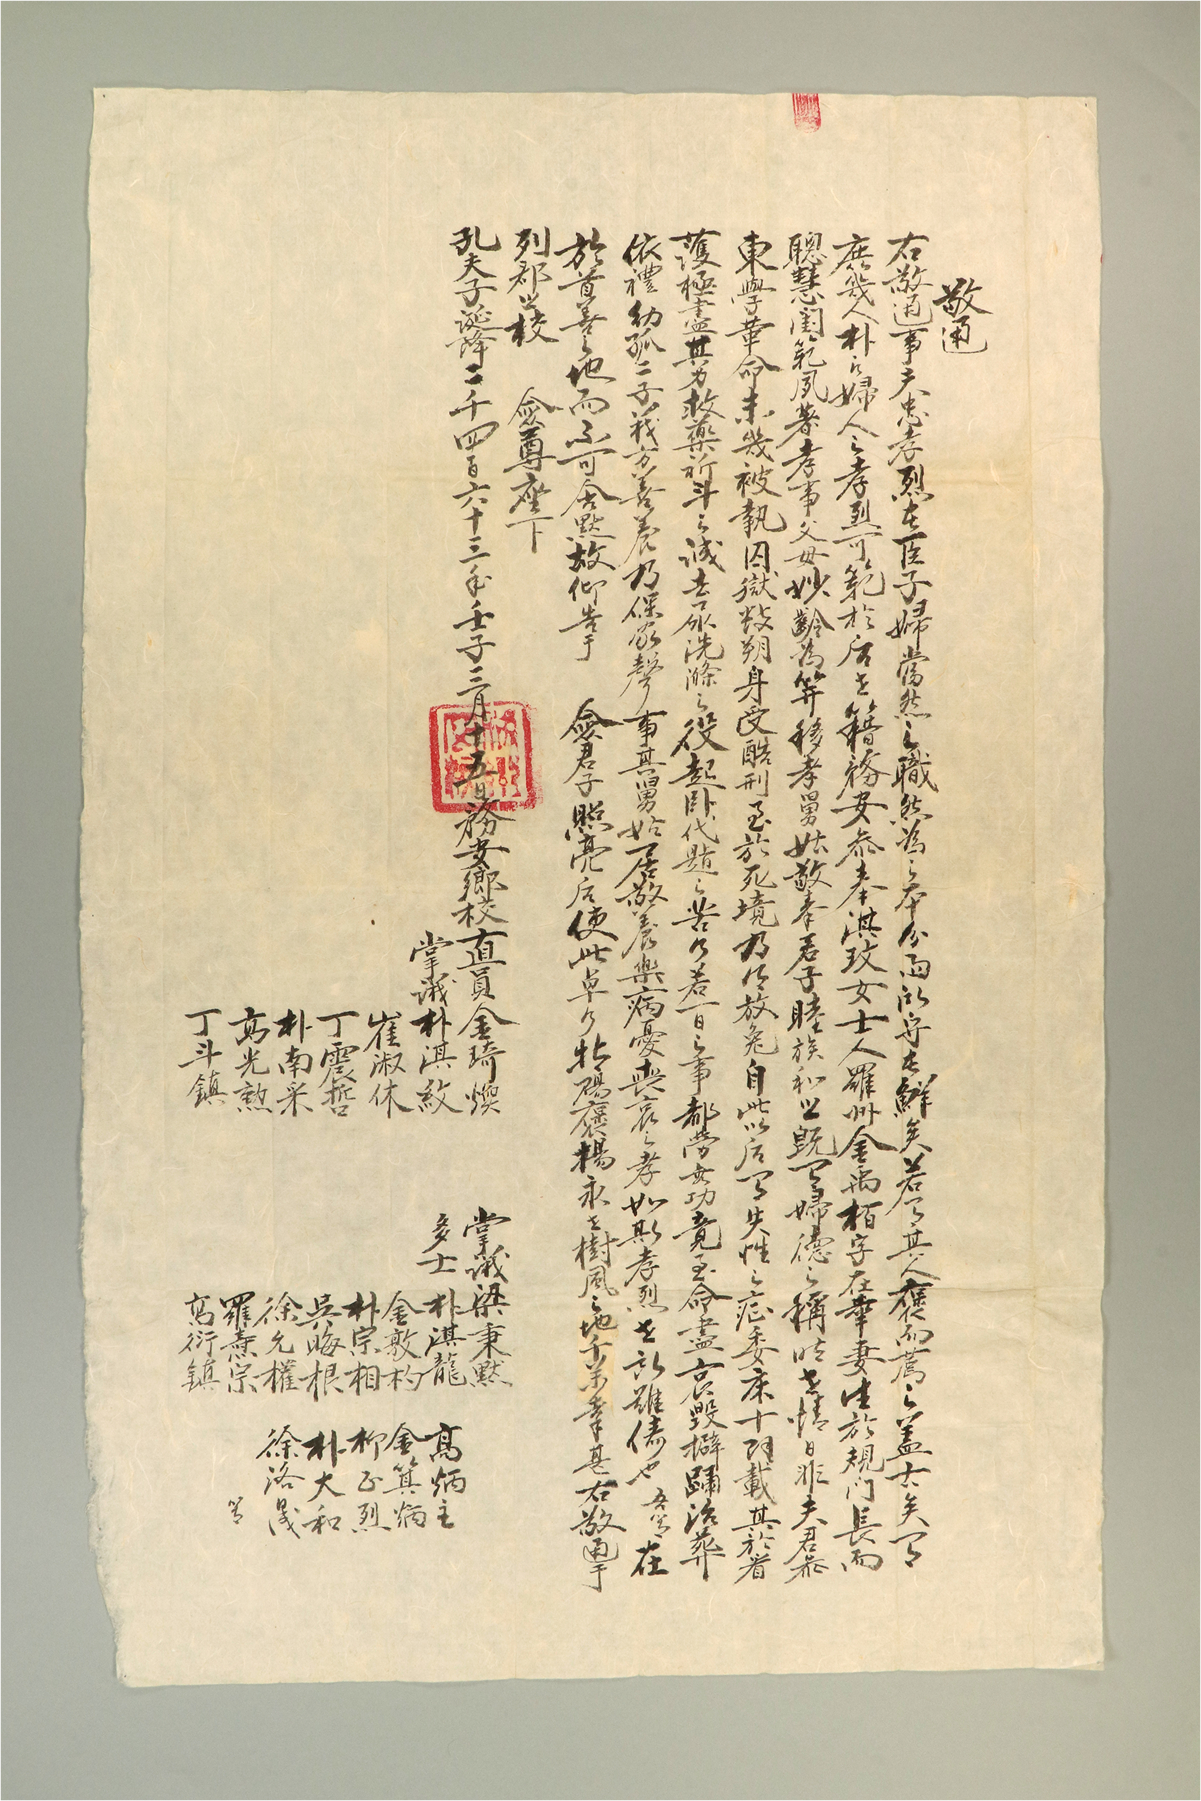 敬通
右敬通事夫忠孝烈在臣子婦當然之職然爲之本分而能守者鮮矣若有其人褒而薦之蓋古矣有
庶幾人朴氏婦人之孝烈可範於后世籍務安參奉淇玟女士人羅州金禹栢字在華妻生於規門長而
聰慧閨範夙著孝事父母妙齡爲笄移孝舅姑敬奉君子睦族和 旣有婦德之稱時世情日非夫君參
東學革命未幾被執囚獄數朔身受酷刑至於死境乃得放免自此以后有失性之症委床十 載其於看
護極盡其力救藥祈斗之誠 尿洗滌之役起卧代 之苦乃若一日之事都勞無功竟至命盡哀毁擗踊治葬
依禮幼孤二子義方善養乃保家聲事其舅姑居敬養樂病憂喪哀之孝如斯孝烈世所難儔也吾等在
於首善之地而不可含默故仰告于 僉君子照亮后使此卓乃 褒揚永世樹風之地千萬幸甚右敬通于
列郡 校 僉尊座下
孔夫子誕降二千四百六十三年壬子三月十五日務安鄕校直員金琦煥
掌議朴淇紋
崔淑休
丁震哲
朴南采
高光勲
丁斗鎮
掌議梁秉默
多士朴淇龍
金敦杓
朴宗相
吳晦根
徐允權
羅熹宗
高衍鎮
高炳主
金箕炳
柳正烈
朴大和
徐洛晟
等